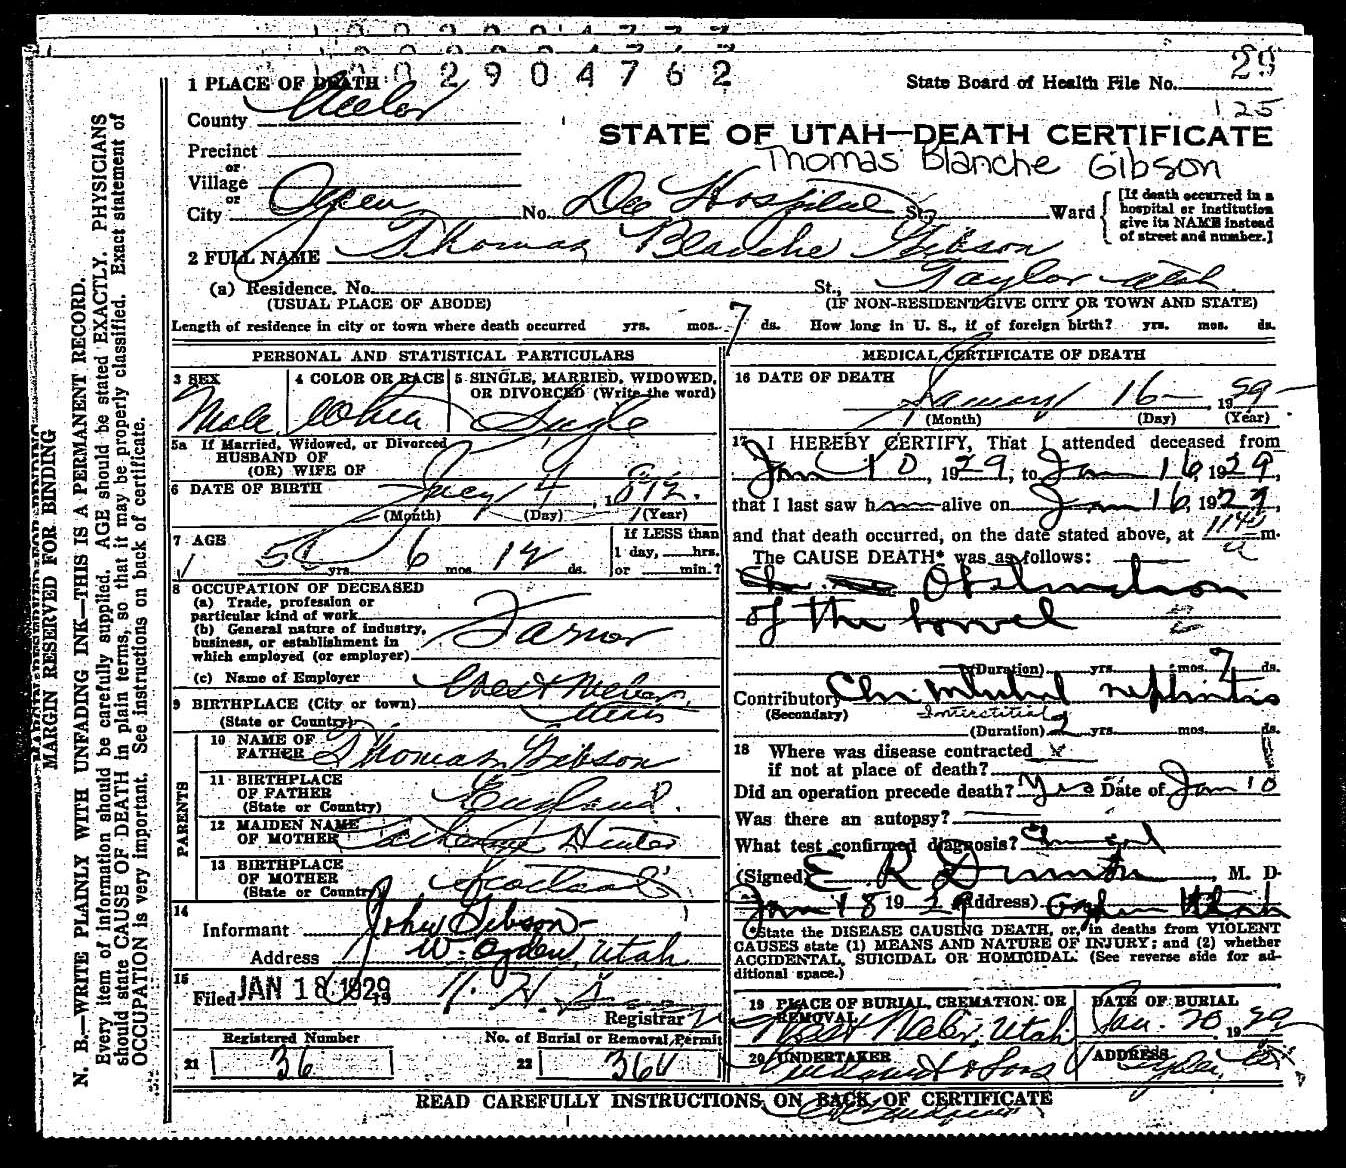 0 0 2 9 0 4 7 6 2
29
1 PLACE OF DEATH
State Board of Health File No.
125
County Weber
STATE OF UTAH—DEATH CERTIFICATE
Precinct
Thomas Blanche Gibson
or
Village
or
City Ogden No. Dee Hospital St., Ward
[If death occurred in a
hospital or institution
give its NAME instead
of street and number.]
2 FULL NAME Thomas Blanche Gibson
(a) Residence. No. St., Taylor Utah
(USUAL PLACE OF ABODE) (IF NON-RESIDENT GIVE CITY OR TOWN AND STATE)
Length of residence in city or town where death occurred yrs. mos. 7 ds. How long in U. S., if of foreign birth? yrs. mos. ds.
PERSONAL AND STATISTICAL PARTICULARS
3 SEX
Male
4 COLOR OR RACE
White
5 SINGLE, MARRIED, WIDOWED,
OR DIVORCED (Write the word)
Single
5a If Married, Widowed, or Divorced
HUSBAND OF
(OR) WIFE OF
6 DATE OF BIRTH July 4, 1872.
(Month) (Day) (Year)
7 AGE
56 yrs. 6 mos. 12 ds.
If LESS than
1 day, hrs.
or min.?
8 OCCUPATION OF DECEASED
(a) Trade, profession or
particular kind of work
(b) General nature of industry,
business, or establishment in
which employed (or employer)
Farmer
(c) Name of Employer
9 BIRTHPLACE (City or town) West Weber,
(State or Country) Utah
PARENTS
10 NAME OF
FATHER Thomas Gibson
11 BIRTHPLACE
OF FATHER
(State or Country) England.
12 MAIDEN NAME
OF MOTHER Catherine Hunter
13 BIRTHPLACE
OF MOTHER
(State or Country) Scotland
14
Informant John Gibson
Address W. Ogden, Utah
15
Filed JAN 18 1929 19
Registrar
Registered Number
21 36
No. of Burial or Removal Permit
22 364
MEDICAL CERTIFICATE OF DEATH
16 DATE OF DEATH
January 16 1929
(Month) (Day) (Year)
17 I HEREBY CERTIFY, That I attended deceased from
Jan 10, 1929, to Jan 16, 1929,
that I last saw h alive on Jan 16, 1929,
and that death occurred, on the date stated above, at a m.
The CAUSE DEATH* was as follows:
Obstruction
of the bowel
(Duration) yrs. mos. 7 ds.
Contributory Chr. nephritis
(Secondary) Interstitial
(Duration) 2 yrs. mos. ds.
18 Where was disease contracted
if not at place of death?
Did an operation precede death? Yes Date of Jan 10
Was there an autopsy?
What test confirmed diagnosis?
(Signed) E R , M. D
Jan 18 1929 (Address) Ogden Utah
*State the DISEASE CAUSING DEATH, or, in deaths from VIOLENT
CAUSES state (1) MEANS AND NATURE OF INJURY; and (2) whether
ACCIDENTAL, SUICIDAL OR HOMICIDAL. (See reverse side for ad-
ditional space.)
19 PLACE OF BURIAL, CREMATION. OR
REMOVAL
West Weber, Utah
DATE OF BURIAL
Jan. 20 1929
20 UNDERTAKER
& Sons
ADDRESS
Ogden, Utah
READ CAREFULLY INSTRUCTIONS ON BACK OF CERTIFICATE
MARGIN RESERVED FOR BINDING
N. B.—WRITE PLAINLY WITH UNFADING INK—THIS IS A PERMANENT RECORD.
Every item of information should be carefully supplied. AGE should be stated EXACTLY. PHYSICIANS
should state CAUSE OF DEATH in plain terms, so that it may be properly classified. Exact statement of
OCCUPATION is very important. See instructions on back of certificate.